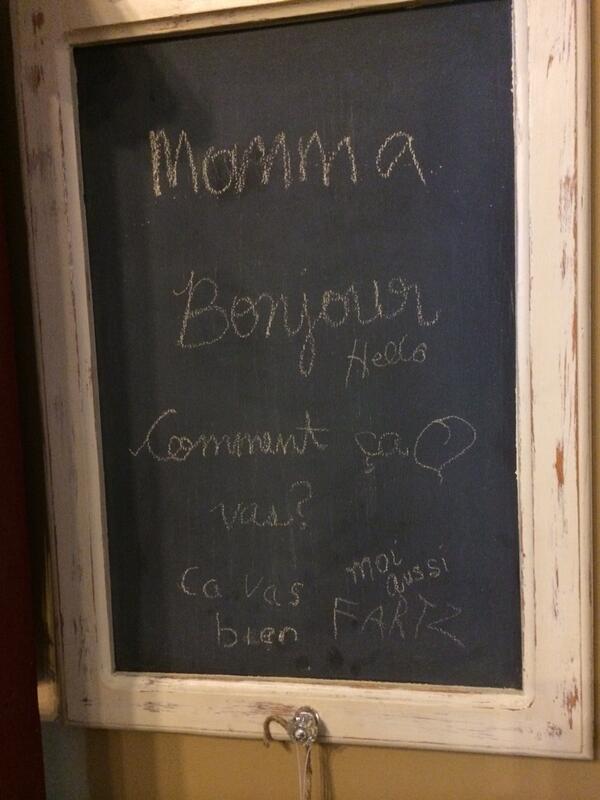 Momma
Bonjour
Hello
Comment ça
vas?
moi
aussi
Ca vas
bien
FARTZ